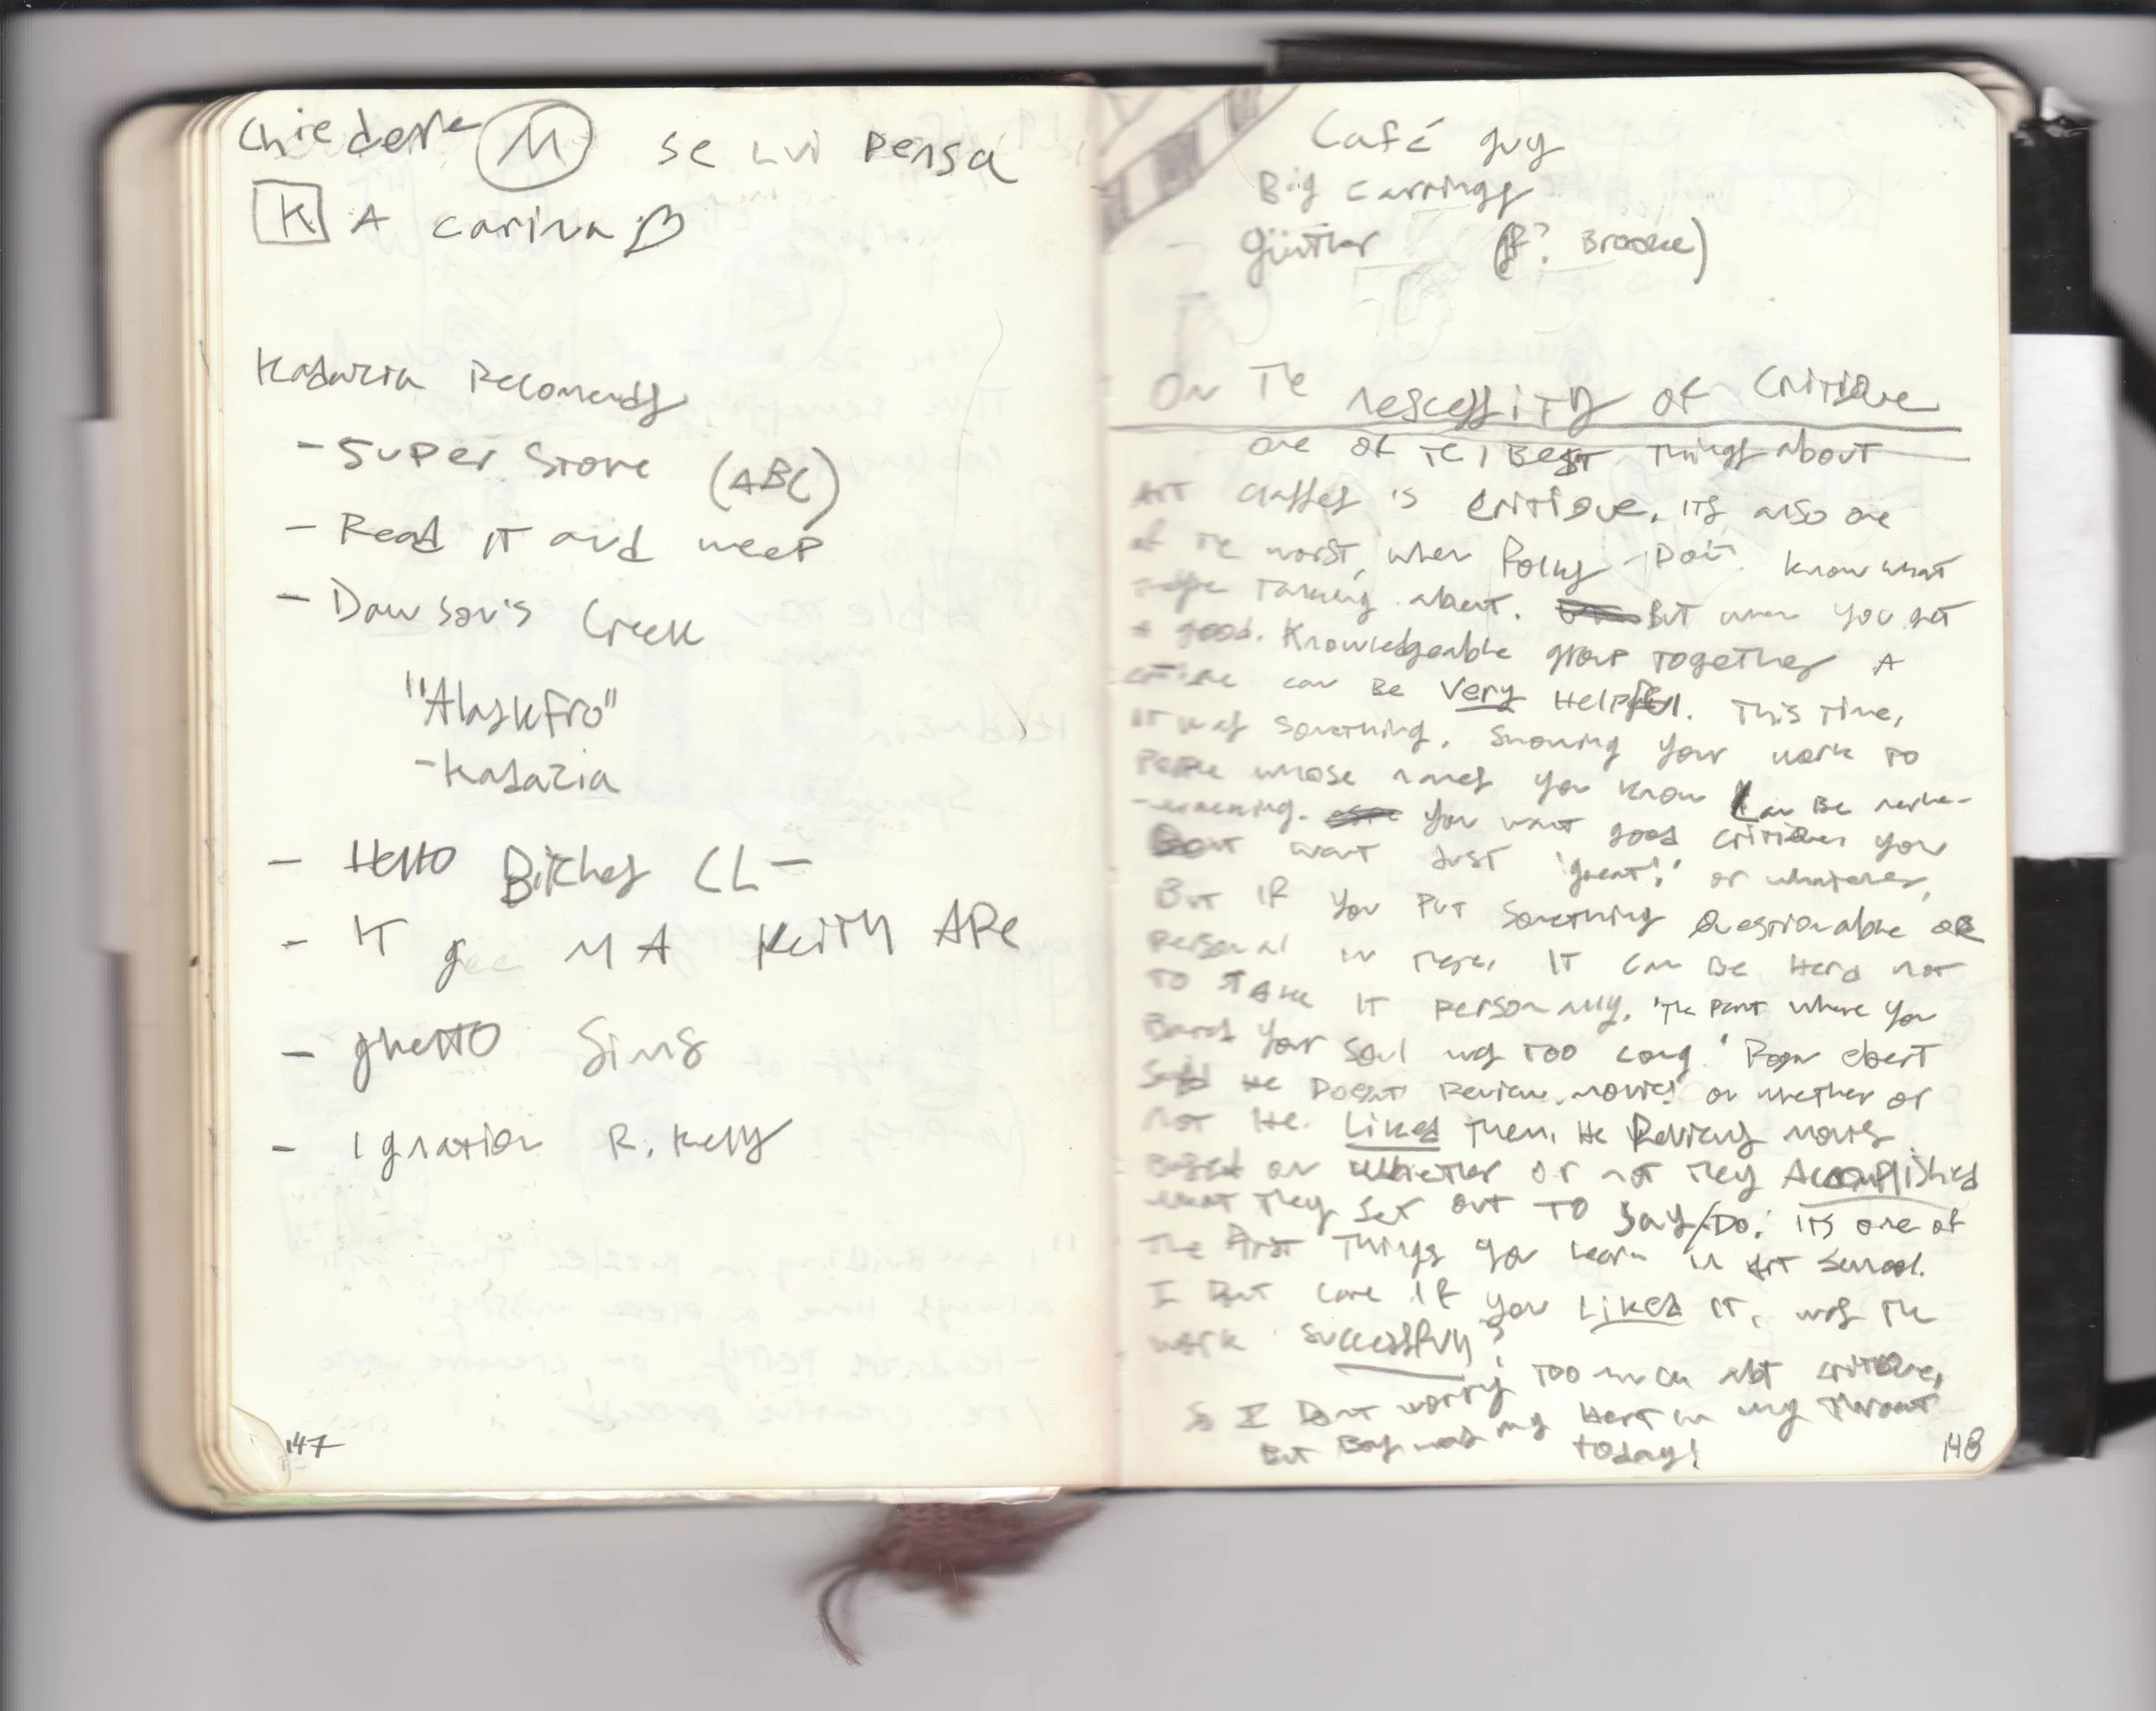 Chiedere M se lui pensa
K A carina
Kadazia Recomends
- Super Store (ABC)
- Read IT and weep
- Dawson's Creek
"AlaskFro"
- Kadazia
- Hello Bitches CL -
- IT gee MA Keith APe
- ghetto Sims
- Ignation R. Kelly
147
Café guy
Big earrings
- Günther (? Brooke)
On The nescessity of Critique
one of the Best Things about
Art classes is critique. its also one
of the worst, when Folks Don't know what
they're Talking about. But when you get
a good. Knowledgeable group together A
critique can be very Helpful. This Time,
IT was something. Showing your work to
People whose names you know Can Be nerve-
You want good critiques you
Dont want Just 'great!' or whatever,
But if you put something Questionable or
personal in there, IT can Be Hard not
TO TAke IT personally. 'The part where you
Bared your soul was Too Long.' Roger ebert
Said He Doesnt Review movies on whether or
not He Liked Them, He Reviews movies
Based on whether or not They Accomplished
what They set out TO say/Do. ITs one of
The First Things you learn in Art School.
I Dont care If you Liked IT, was The
work successful?
So I Dont worry Too much abt critique,
But Boy was my Hert in my Throat
today!
148